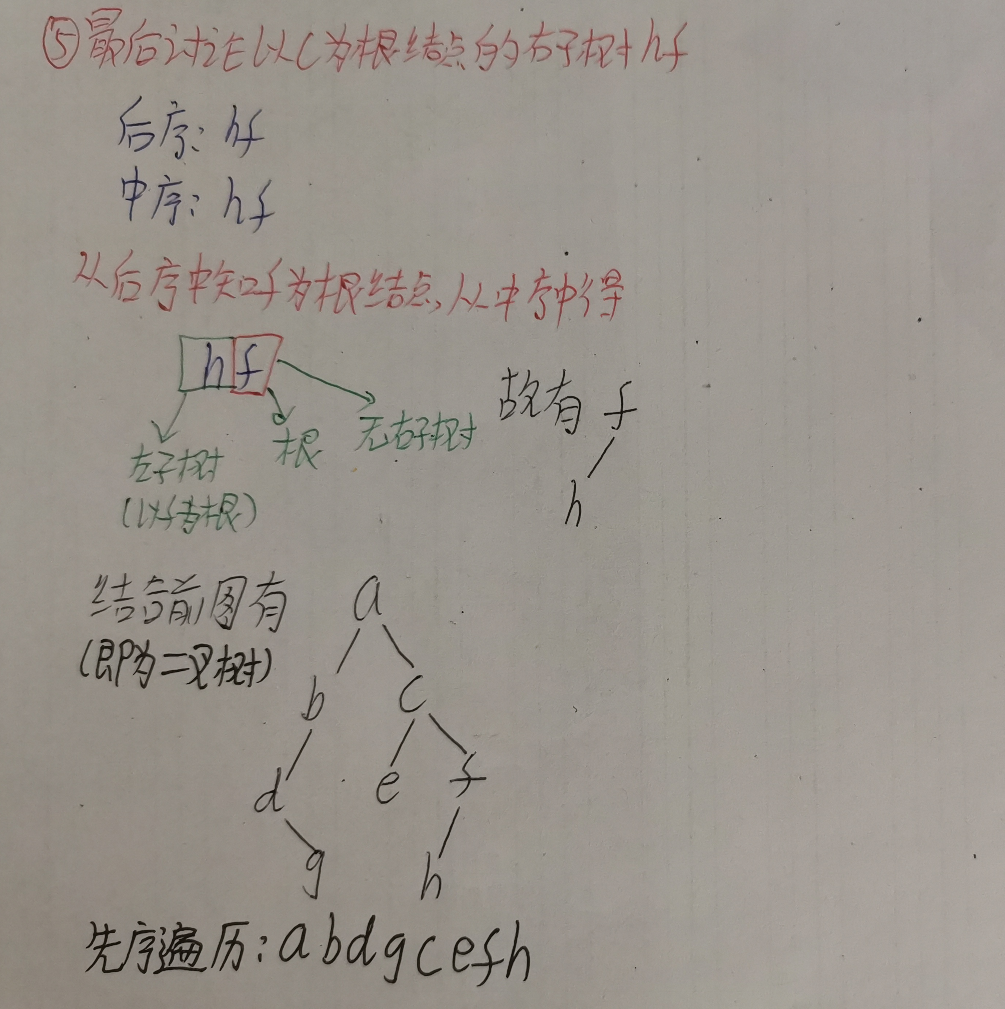 ⑤最后讨论以C为根结点的右子树hf
后序：hf
中序：hf
从后序中知f为根结点,从中序中得
hf
左子树
(以f为根)
根
无右子树
故有 f
h
结合前图有
(即为二叉树)
a
b c
d e f
g h
先序遍历：abdgcefh